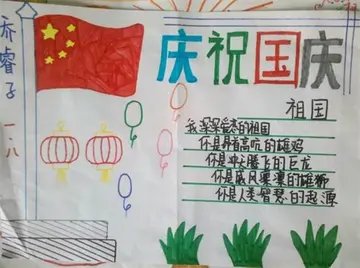 庆祝国庆
祖国
我深深爱恋的祖国
你是昂首高吭的雄鸡
你是冲天腾飞的巨龙
你是威风凛凛的雄狮
你是人类智慧的起源
乔睿子
一.八